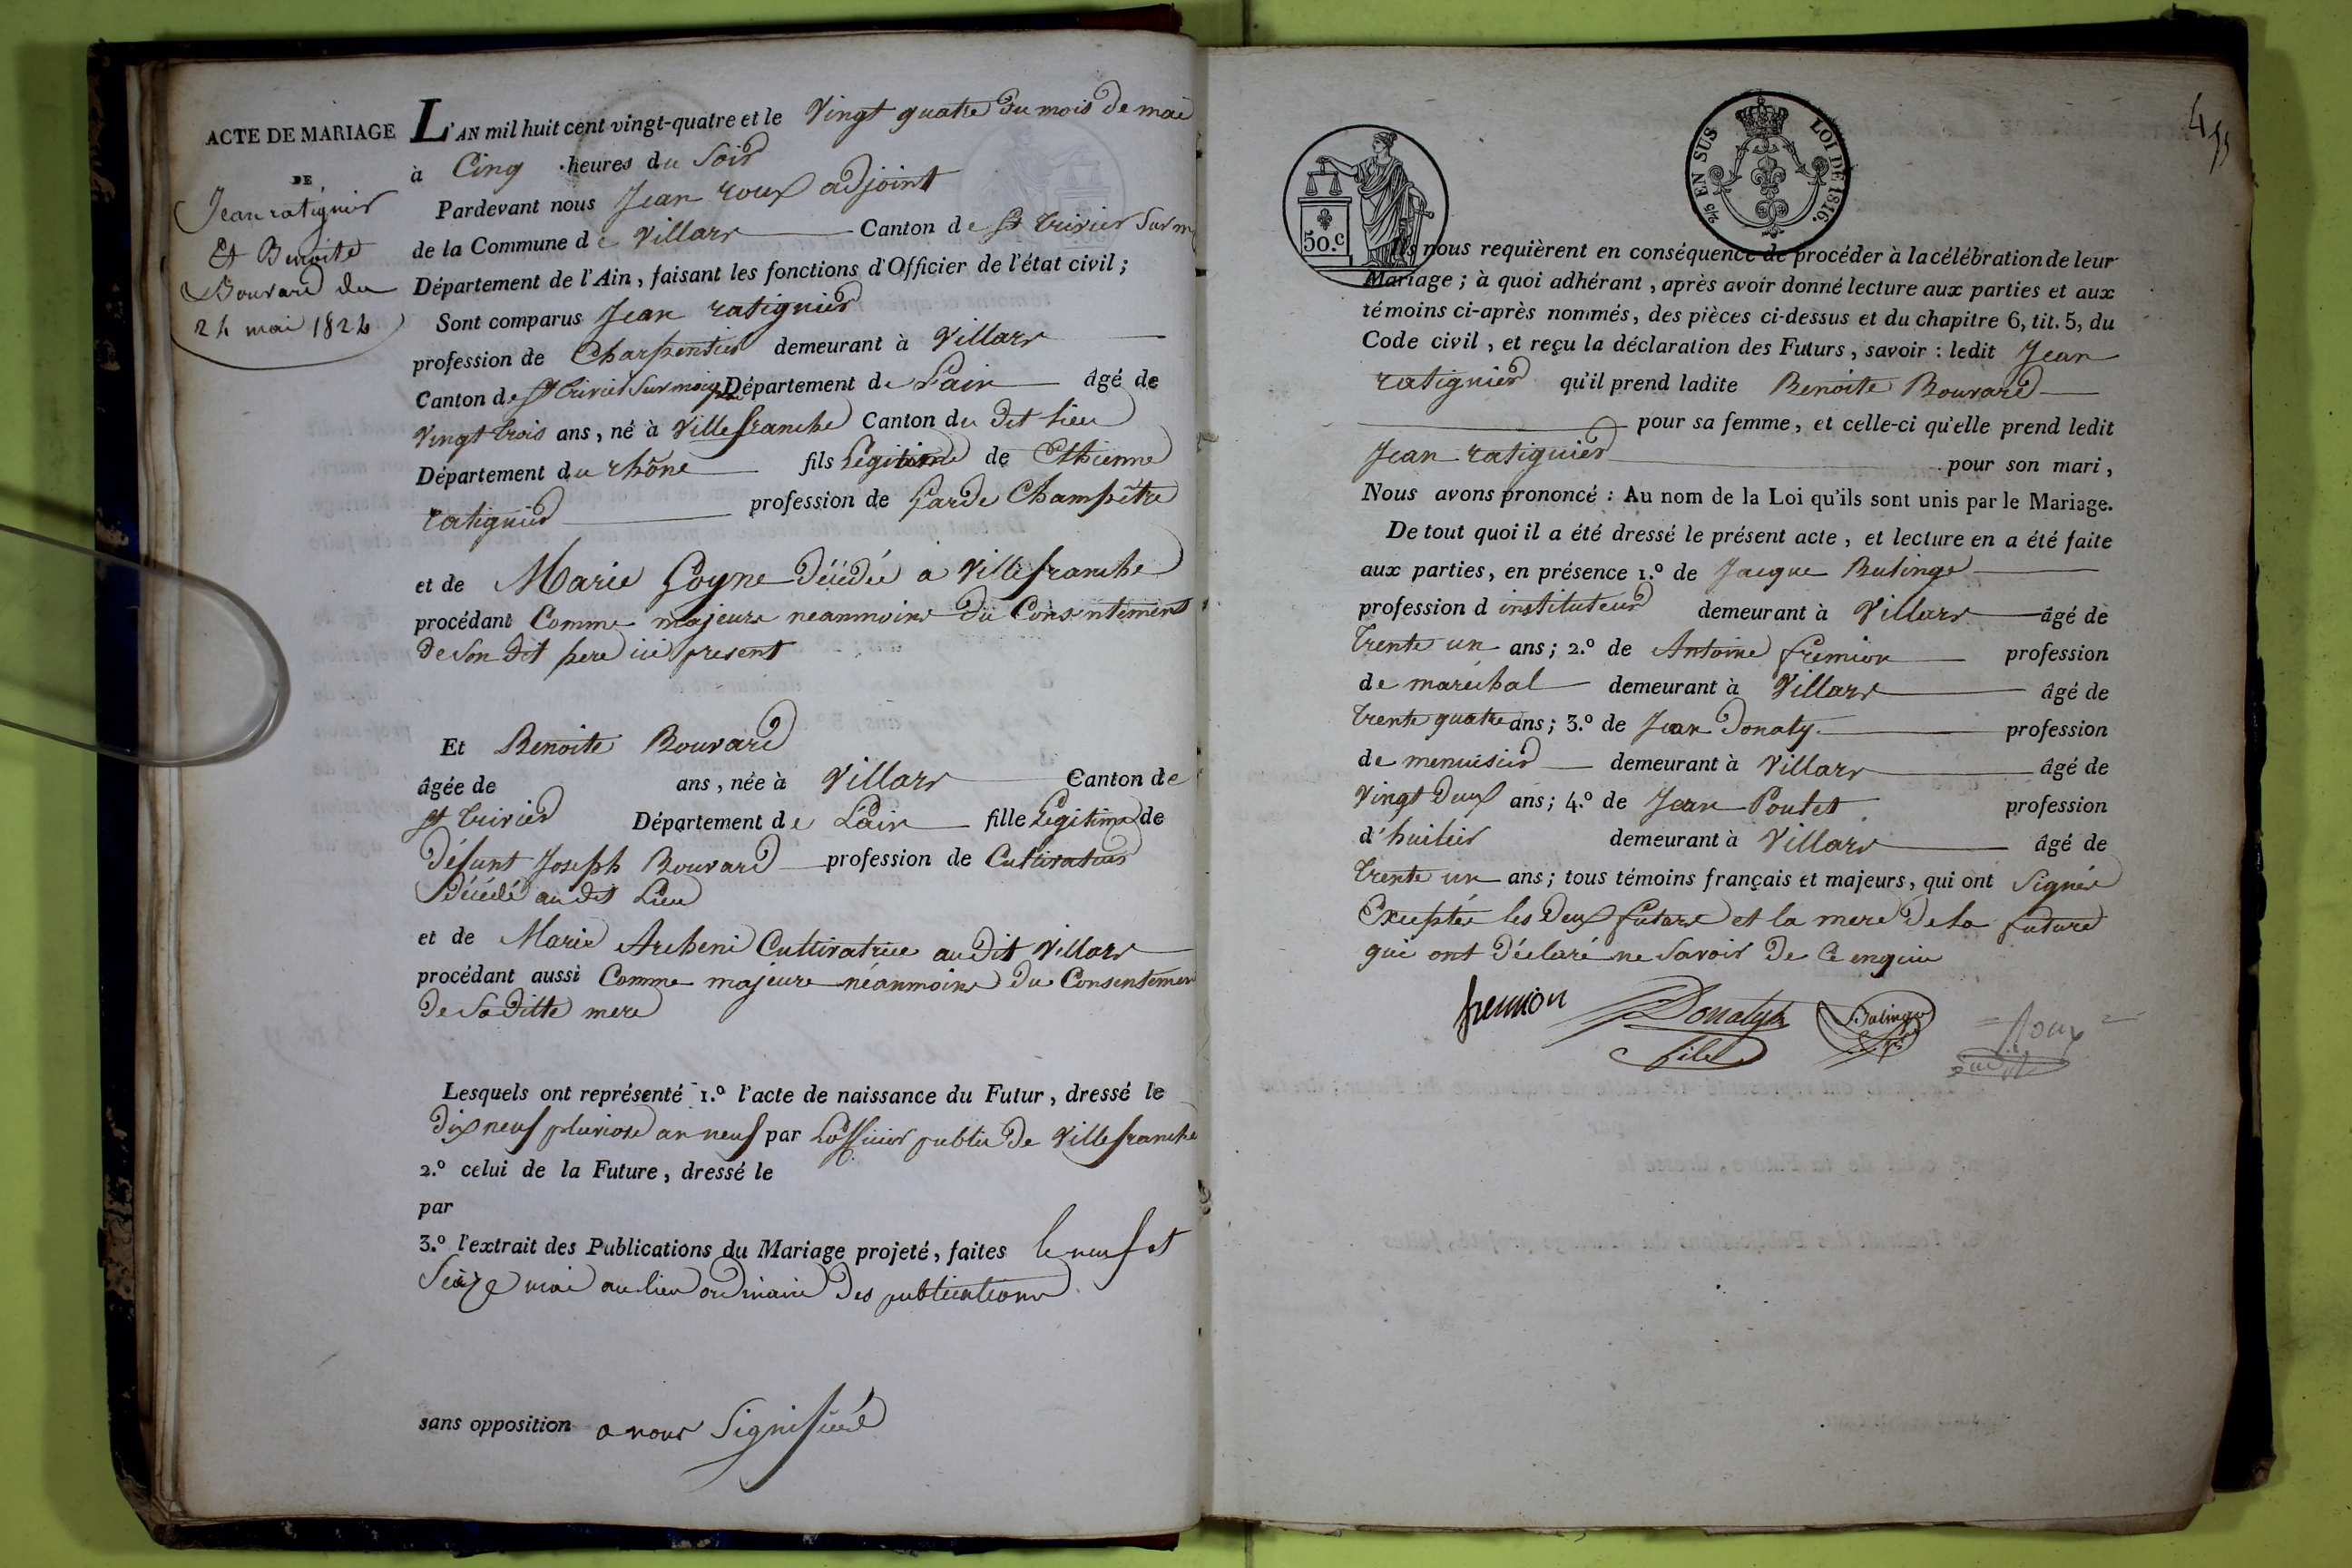 ACTE DE MARIAGE
DE
Jean ratignier
Et Benoite
Bouvard du
24 mai 1824
L'AN mil huit cent vingt-quatre et le Vingt quatre du mois de mai
à Cinq heures du Soir
Pardevant nous Jean roux adjoint
de la Commune de Villars Canton de St trivier Sur m
Département de l'Ain, faisant les fonctions d'Officier de l'état civil;
Sont comparus Jean ratignier
profession de Charpentier demeurant à Villars
Canton de St trivier Sur moig Département de Lain âgé de
Vingt trois ans, né à Villefranche Canton du dit lieu
Département du rhône fils Legitime de Ethienne
ratignier profession de Garde Champêtre
et de Marie Goyne décédée a Villefranche
procédant Comme majeure neanmoins du Consentement
de Son dit pere ici present
Et Benoite Bouvard
âgée de ans, née à Villars Canton de
St trivier Département de Lain fille Legitime de
défunt Joseph Bouvard profession de Cultivateur
Décédé au dit Lieu
et de Marie Archeni Cultivatrice au dit Villars
procédant aussi Comme majeure néanmoins du Consentemen
de Sa ditte mere
Lesquels ont représenté 1.º l'acte de naissance du Futur, dressé le
dix neuf pluviose an neuf par Lofficier public de Villefranche
2.º celui de la Future, dressé le
par
3.º l'extrait des Publications du Mariage projeté, faites le neuf et
Seize mai au lieu ordinaire des publications
sans opposition a nous Signifiée
45
50.c
2/5 EN SUS LOI DE 1816.
Ils nous requièrent en conséquence de procéder à la célébration de leur
Mariage; à quoi adhérant, après avoir donné lecture aux parties et aux
témoins ci-après nommés, des pièces ci-dessus et du chapitre 6, tit. 5, du
Code civil, et reçu la déclaration des Futurs, savoir : ledit Jean
ratignier qu'il prend ladite Benoite Bouvard
pour sa femme, et celle-ci qu'elle prend ledit
Jean ratignier pour son mari,
Nous avons prononcé : Au nom de la Loi qu'ils sont unis par le Mariage.
De tout quoi il a été dressé le présent acte, et lecture en a été faite
aux parties, en présence 1.º de Jacque Bulinge
profession d instituteur demeurant à Villars âgé de
trente un ans; 2.º de Antoine fremion profession
de maréchal demeurant à Villars âgé de
trente quatre ans; 3.º de Jean Donaty profession
de menuisier demeurant à Villars âgé de
Vingt deux ans; 4.º de Jean Poulet profession
d'huilier demeurant à Villars âgé de
trente un ans; tous témoins français et majeurs, qui ont Signés
Exceptés les deux futurs et la mere de la future
qui ont déclaré ne Savoir de Ce enquis
fremion Donaty fils Bulinge Roux